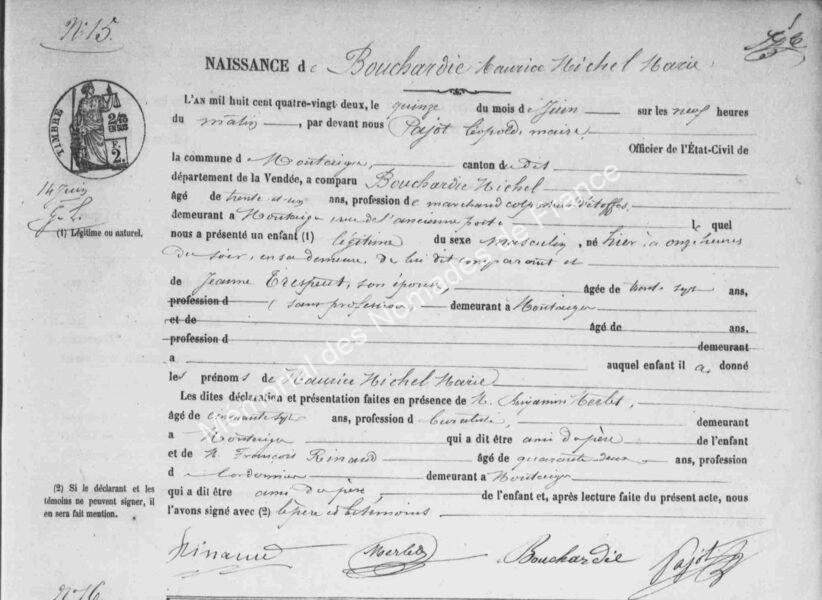 N° 15.
NAISSANCE de Bouchardie Maurice Michel Marie
L'AN mil huit cent quatre-vingt deux, le quinze du mois de Juin sur les neuf heures
du matin, par devant nous Pajot Léopold, maire,
Officier de l'État-Civil de
la commune de Montaigu, canton du dit
département de la Vendée, a comparu Bouchardie Michel
âgé de trente et un ans, profession de marchand colporteur d'étoffes
demeurant à Montaigu, rue de l'ancienne poste lequel
nous a présenté un enfant (1) légitime du sexe masculin, né hier, à onze heures
du soir, en sa demeure, de lui dit comparant et
de Jeanne Trespeut, son épouse, âgée de trente sept ans,
profession d (sans profession, demeurant à Montaigu
et de âgé de ans,
profession d demeurant
a auquel enfant il a donné
les prénoms de Maurice Michel Marie
Les dites déclaration et présentation faites en présence de M. Benjamin Merlet,
âgé de cinquante sept ans, profession d demeurant
a Montaigu qui a dit être ami du père de l'enfant
et de M. François Rinaud âgé de quarante deux ans, profession
d cordonnier demeurant à Montaigu
qui a dit être ami du père, de l'enfant et, après lecture faite du présent acte, nous
l'avons signé avec (2) le père et les témoins
Rinaud Merlet Bouchardie Pajot
TIMBRE
2/10 EN SUS
F. 2.
14 Juin
(1) Légitime ou naturel.
(2) Si le déclarant et les
témoins ne peuvent signer, il
en sera fait mention.
N° 16
Mémorial des Nomades de France